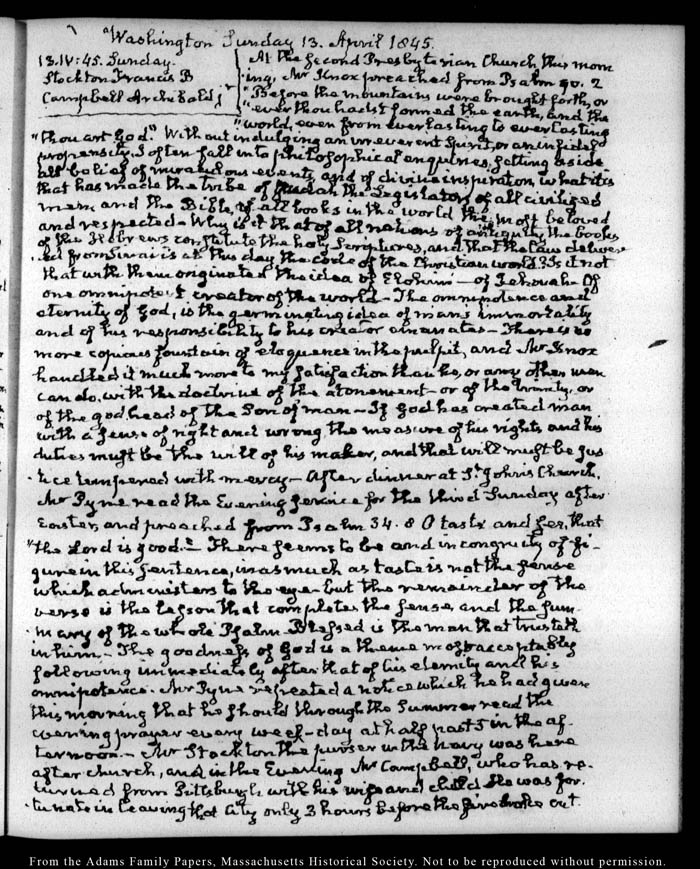 Washington Sunday 13. April 1845.
13. IV: 45. Sunday.
Stockton Francis B
Campbell Archibald jr
At the Second Presbyterian Church this morn
ing, Mr Knox preached from Psalm 90. 2
"Before the mountains were brought forth, or
"ever thou hadst formed the earth, and the
"world, even from everlasting to everlasting
"thou art God." Without indulging an irreverent spirit, or an infidel
propensity, I often fall into philosophical enquiries, setting aside
all belief of miraculous events, and of divine inspiration, what it is
that has made the tribe of Judah, the Legislators of all civilized
men, and the Bible, of all books in the world the most beloved
and respected. Why is it that of all nations of antiquity the books
of the Hebrews constitute the holy Scriptures, and that the law deliver
ed from Sinai is at this day the code of the Christian world? Is it not
that with them originated the idea of Elohim — of Jehovah — Of
one omnipotent creator of the world — The omnipotence and
eternity of God, is the germinating idea of mans immortality
and of his responsibility to his creator emanates — There is no
more copious fountain of eloquence in the pulpit, and Mr Knox
handled it much more to my satisfaction than he, or any other man
can do, with the doctrine of the atonement — or of the trinity, or
of the godhead of the Son of man — If God has created man
with a sense of right and wrong the measure of his rights and his
duties must be the will of his maker, and that will must be jus
tice tempered with mercy — After dinner at St. John's Church,
Mr Pyne read the Evening service for the third Sunday after
Easter, and preached from Psalm 34. 8 O taste and see, that
"the Lord is good." — There seems to be and incongruity of fi-
gure in this sentence, inasmuch as taste is not the sense
which administers to the eye — but the remainder of the
verse is the lesson that completes the sense, and the sum-
mary of the whole Psalm. Blessed is the man that trusteth
in him — The goodness of God is a theme most acceptably
following immediately after that of his eternity and his
omnipotence. Mr Pyne repeated a notice which he had given
this morning that he should through the Summer read the
evening prayer every week-day at half past 5 in the af-
ternoon. — Mr Stockton the purser in the navy was here
after church, and in the Evening Mr Campbell, who has re-
turned from Pittsburgh with his wife and child. He was for-
tunate in leaving that City only 3 hours before the fire broke out
From the Adams Family Papers, Massachusetts Historical Society. Not to be reproduced without permission.